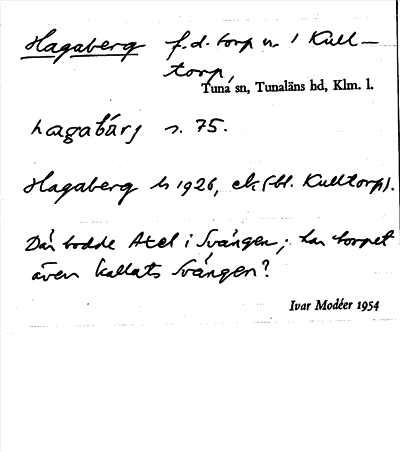 Hagaberg f.d. torp u. 1 Kull-
torp,
Tuna sn, Tunaläns hd, Klm. l.
hagabárj s. 75.
Hagaberg h 1926, ek (bl. Kulltorp).
Där bodde Axel i Svängen; har torpet
även kallats Svängen?
Ivar Modéer 1954